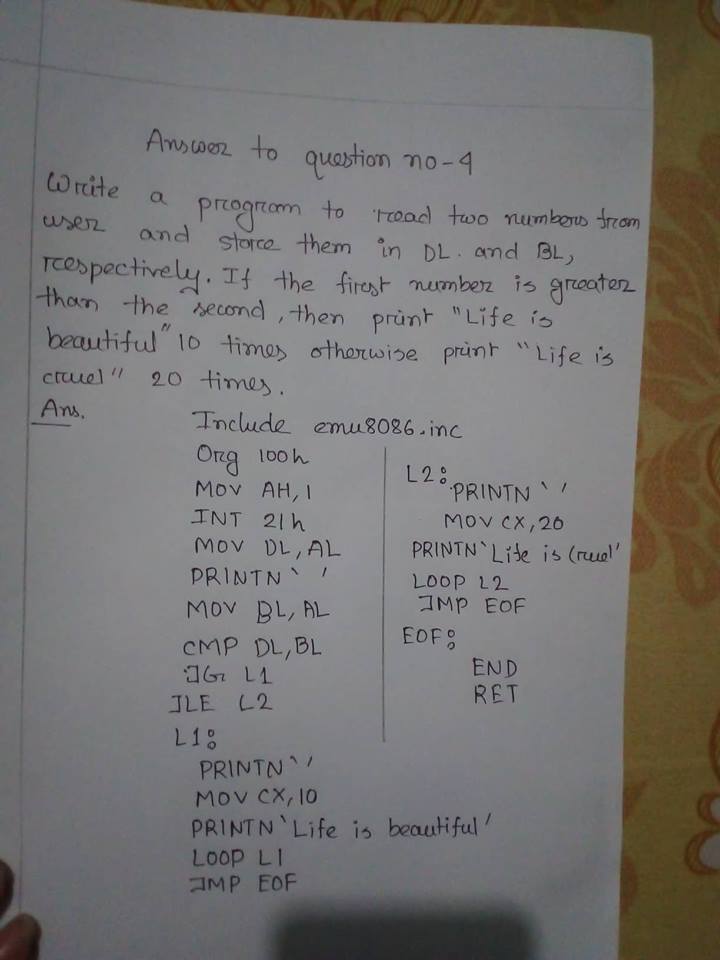 Answer to question no-4
Write a program to read two numbers from
user and store them in DL. and BL,
respectively. If the first number is greater
than the second, then print "Life is
beautiful" 10 times otherwise print "Life is
cruel" 20 times.
Ans.
Include emu8086.inc
Org 100h
MOV AH,1
INT 21h
MOV DL,AL
PRINTN ' '
MOV BL,AL
CMP DL,BL
JG L1
JLE L2
L1:
PRINTN ' '
MOV CX,10
PRINTN 'Life is beautiful'
LOOP L1
JMP EOF
L2:
PRINTN ' '
MOV CX,20
PRINTN 'Life is Cruel'
LOOP L2
JMP EOF
EOF:
END
RET